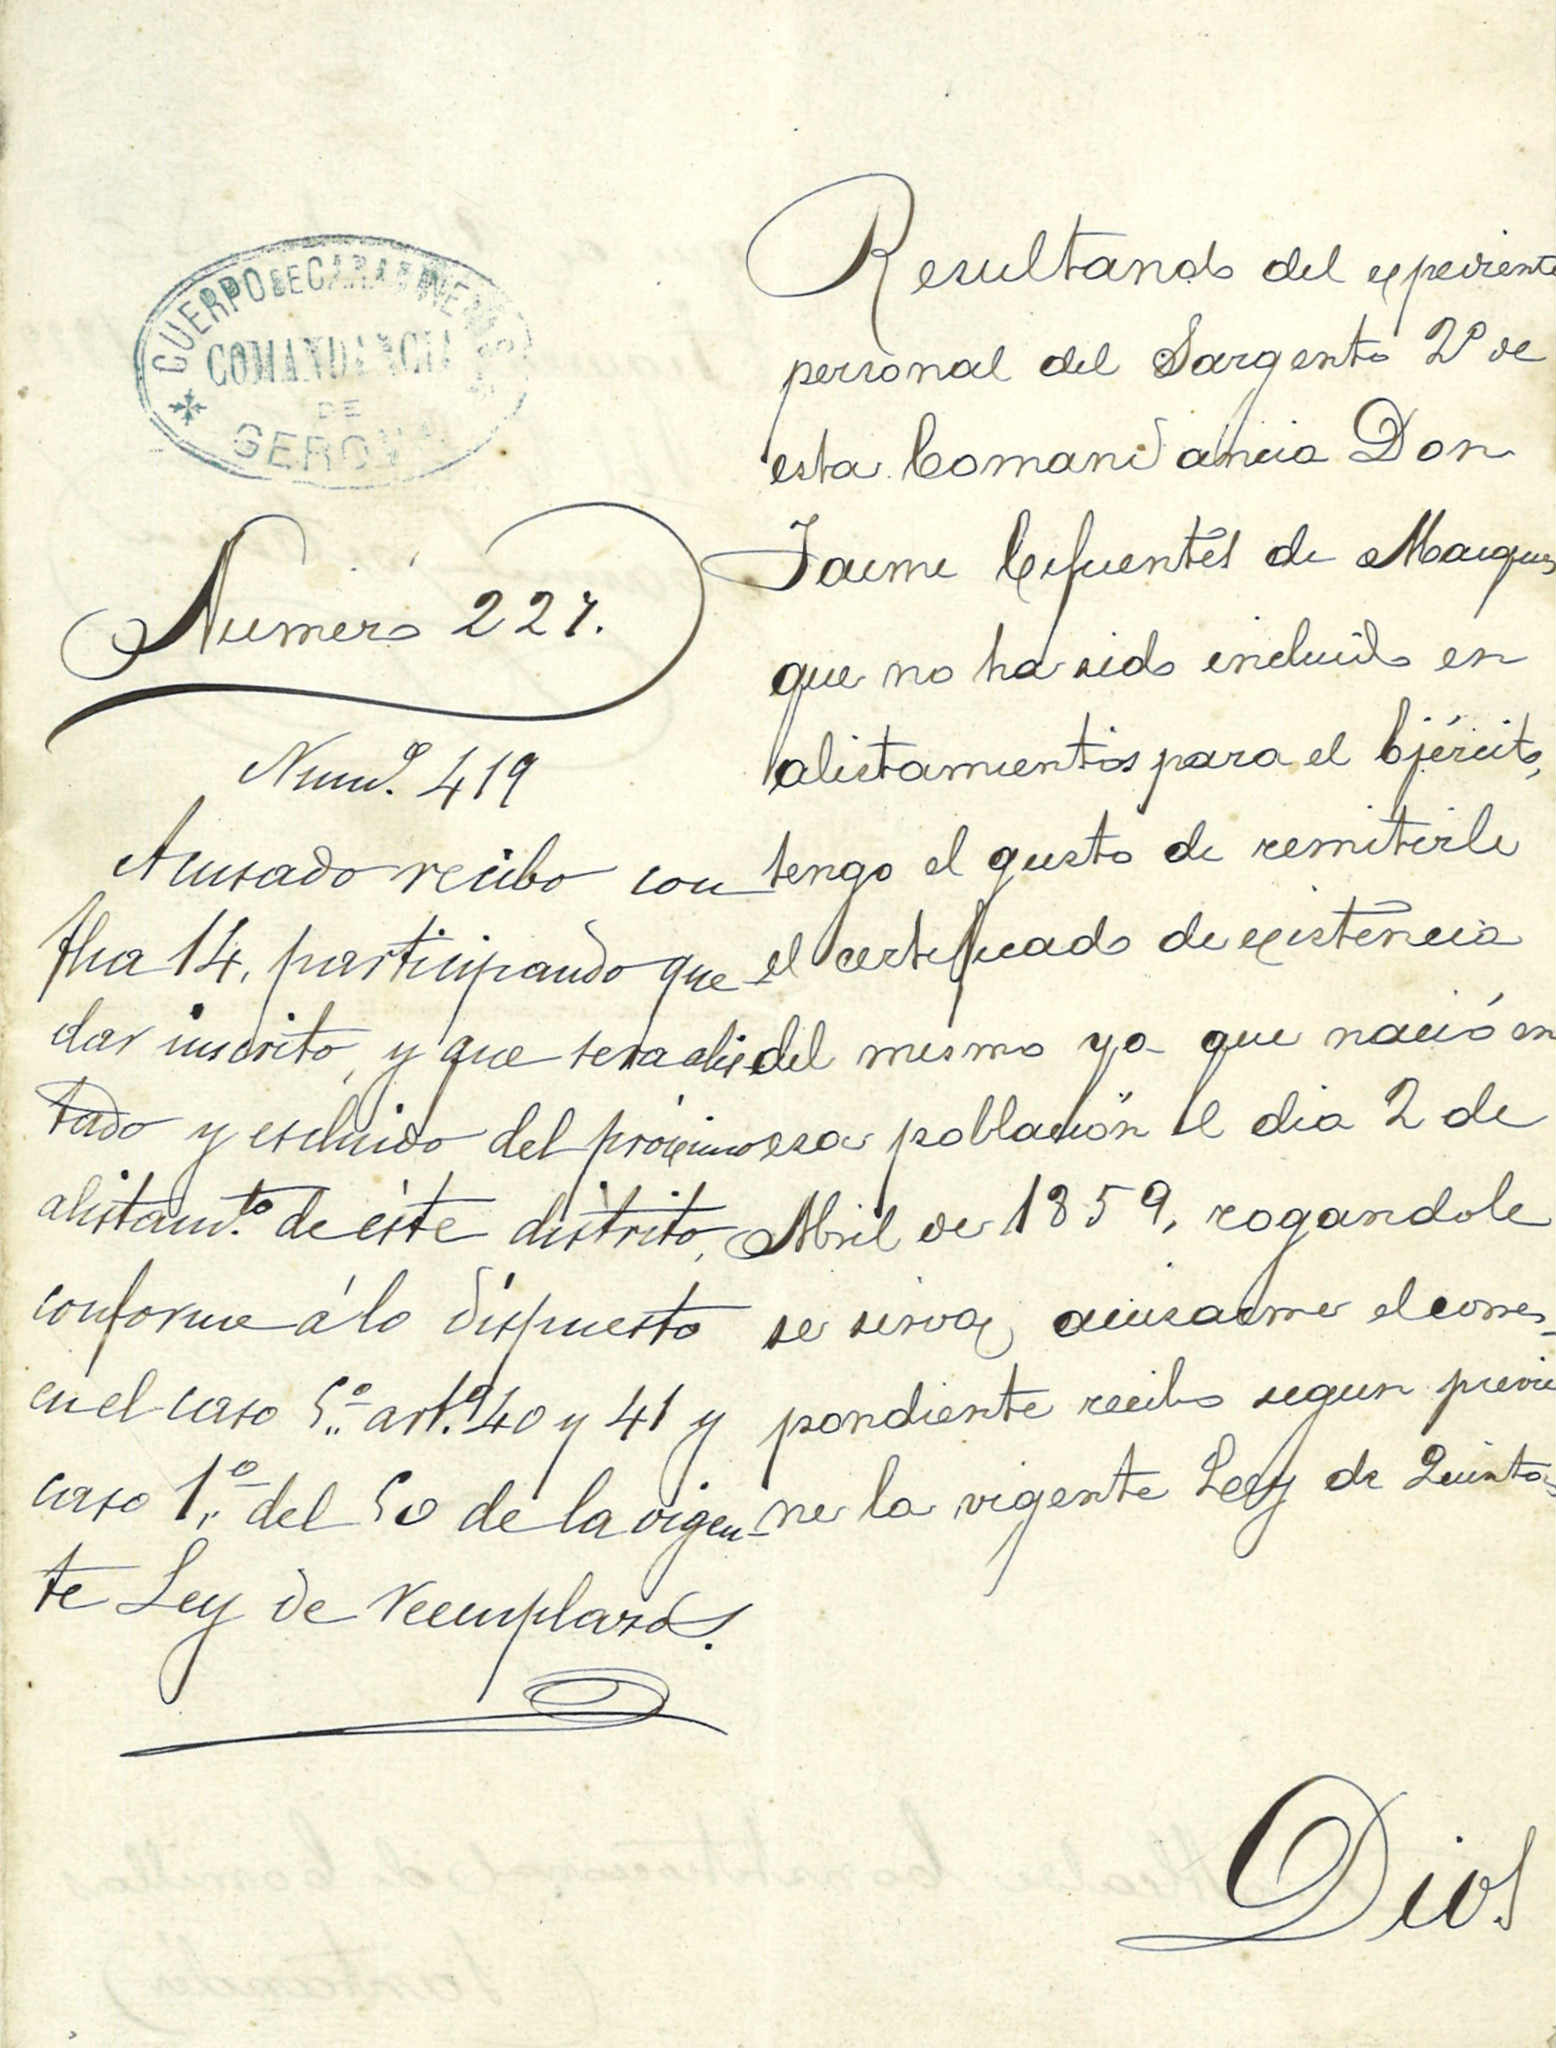 CUERPO DE CARABINEROS
COMANDANCIA
DE
GERONA
Numero 227.
Num.º 419
Acusado recibo con
fha 14, participando que
dar inscrito, y que sera alis
tado y escluido del próximo
alistam.to de éste distrito,
conforme á lo dispuesto
en el caso 5.º art.º 40 y 41 y
caso 1.º del 50 de la vigen-
te Ley de reemplazos.
Resultando del expediente
personal del Sargento 2º de
esta Comandancia Don
Jaime Cifuentes de
que no ha sido incluido en
alistamientos para el Ejército,
tengo el gusto de remitirle
el certificado de existencia
del mismo ya que nació en
esa población el dia 2 de
Abril de 1859, rogandole
se sirva acusarme el corres-
pondiente recibo segun previe
ne la vigente Ley de Quintas
Dios